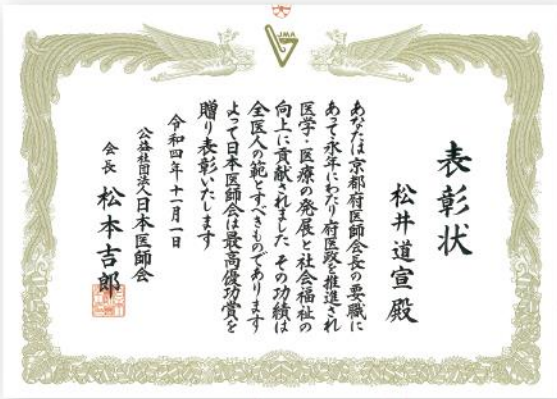 JMA
表彰状
松井道宣殿
あなたは京都府医師会長の要職に
あって永年にわたり府医政を推進され
医学・医療の発展と社会福祉の
向上に貢献されました その功績は
全医人の範とすべきものであります
よって日本医師会は最高優功賞を
贈り表彰いたします
令和四年十一月一日
公益社団法人日本医師会
会長 松本吉郎